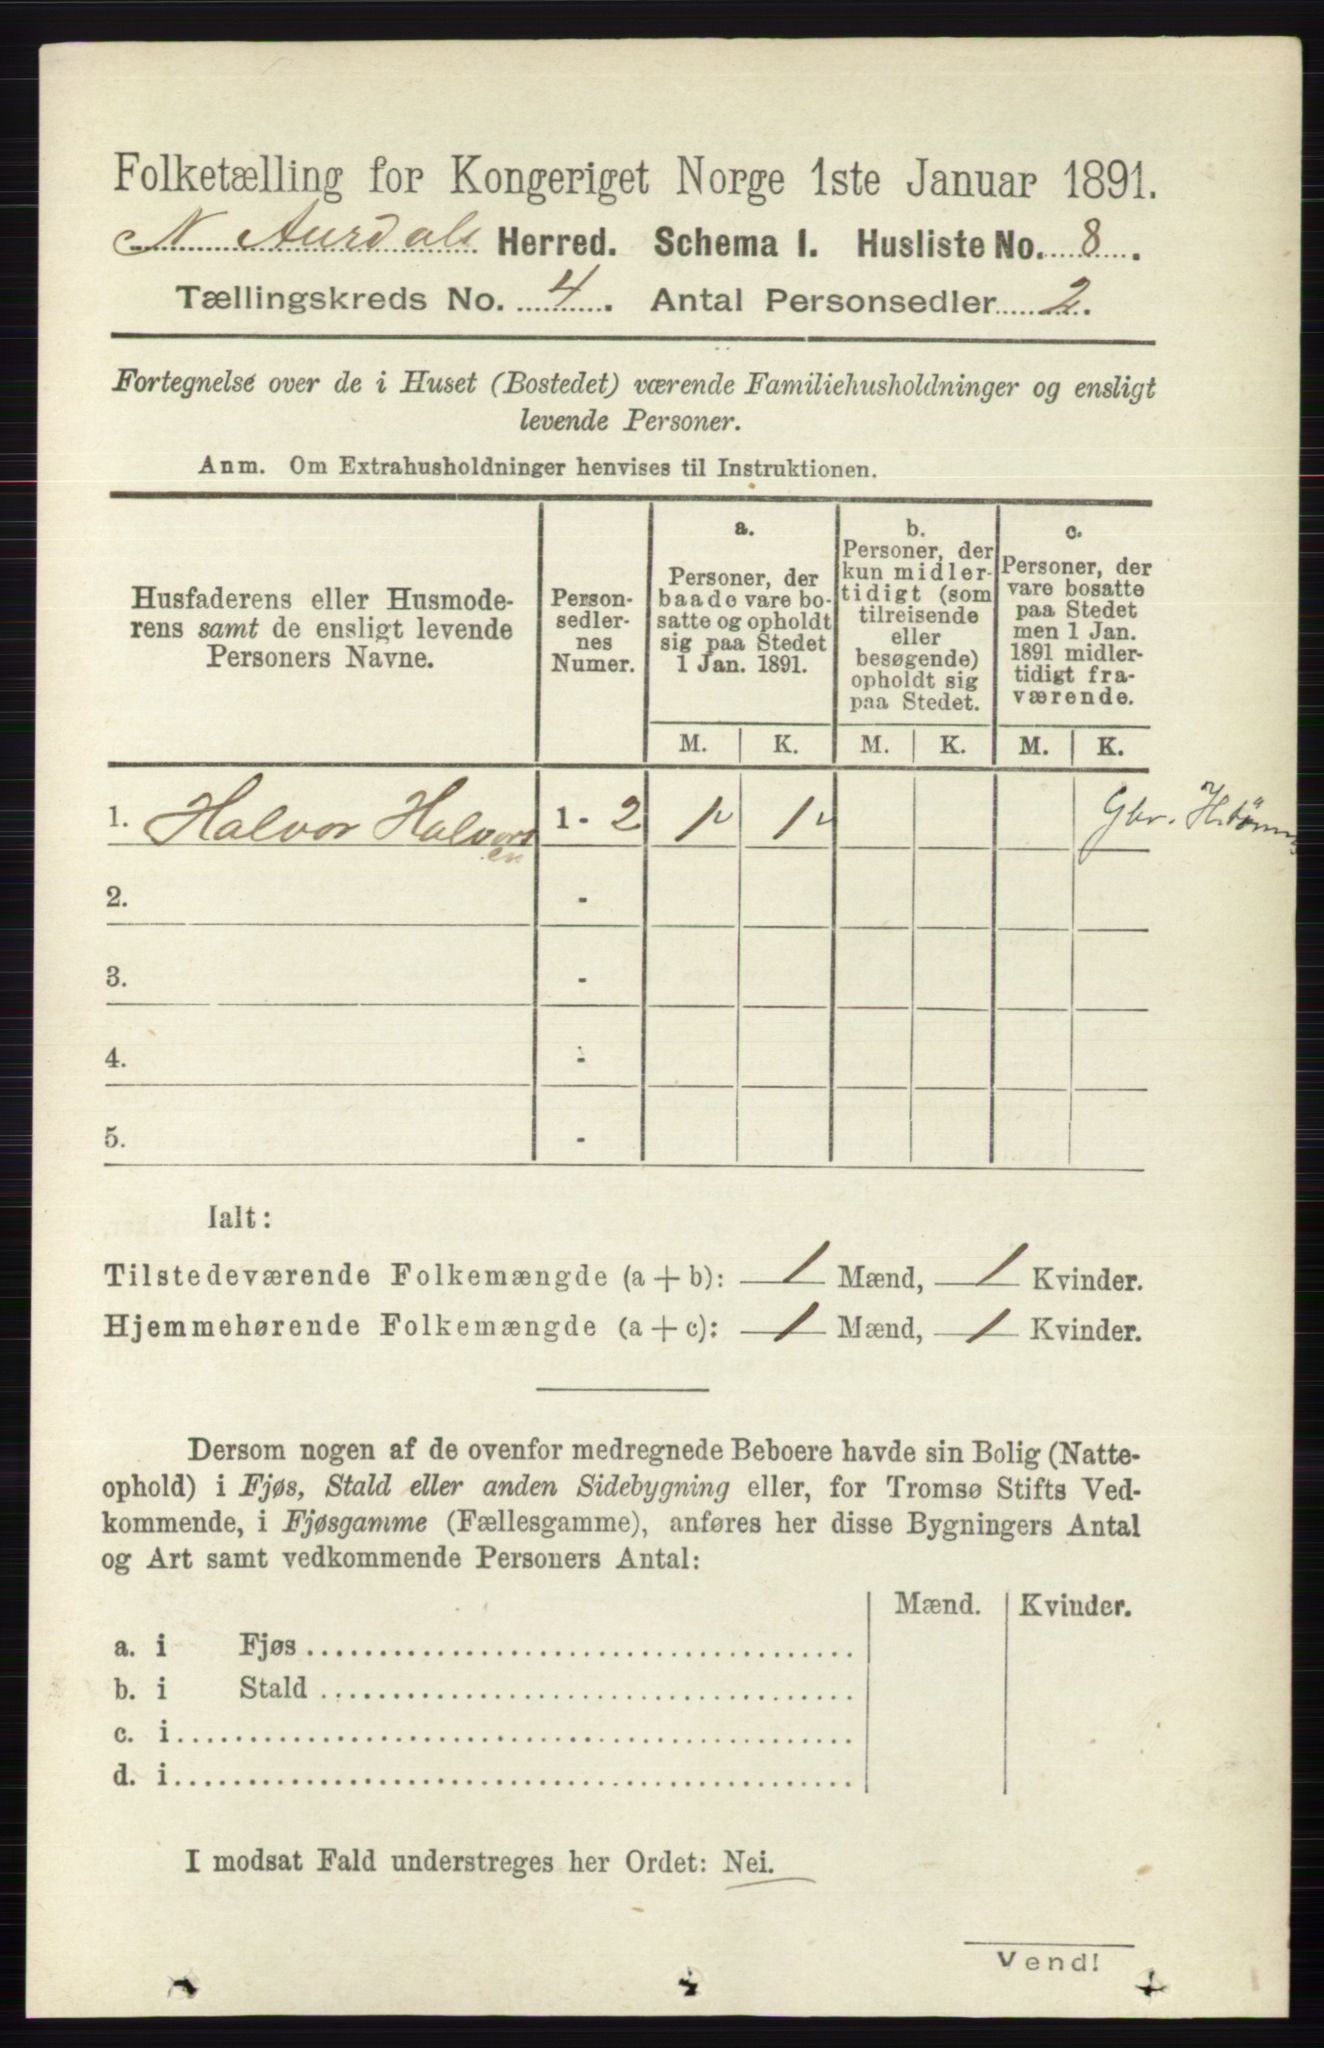 Folketælling for Kongeriget Norge 1ste Januar 1891.
N. Aurdals Herred. Schema I. Husliste No. 8.
Tællingskreds No. 4. Antal Personsedler 2.
Fortegnelse over de i Huset (Bostedet) værende Familiehusholdninger og ensligt
levende Personer.
Anm. Om Extrahusholdninger henvises til Instruktionen.
Husfaderens eller Husmode-
rens samt de ensligt levende
Personers Navne.
Person-
sedler-
nes
Numer.
a.
Personer, der
baade vare bo-
satte og opholdt
sig paa Stedet
1 Jan. 1891.
b.
Personer, der
kun midler-
tidigt (som
tilreisende
eller
besøgende)
opholdt sig
paa Stedet.
c.
Personer, der
vare bosatte
paa Stedet
men 1 Jan.
1891 midler-
tidigt fra-
værende.
M. K. M. K. M. K.
1. Halvor Halvorsen 1 - 2 1 1 Gbr.
2. -
3. -
4. -
5. -
Ialt:
Tilstedeværende Folkemængde (a + b): 1 Mænd, 1 Kvinder.
Hjemmehørende Folkemængde (a + c): 1 Mænd, 1 Kvinder.
Dersom nogen af de ovenfor medregnede Beboere havde sin Bolig (Natte-
ophold) i Fjøs, Stald eller anden Sidebygning eller, for Tromsø Stifts Ved-
kommende, i Fjøsgamme (Fællesgamme), anføres her disse Bygningers Antal
og Art samt vedkommende Personers Antal:
Mænd. Kvinder.
a. i Fjøs
b. i Stald
c. i
d. i
I modsat Fald understreges her Ordet: Nei.
Vend!